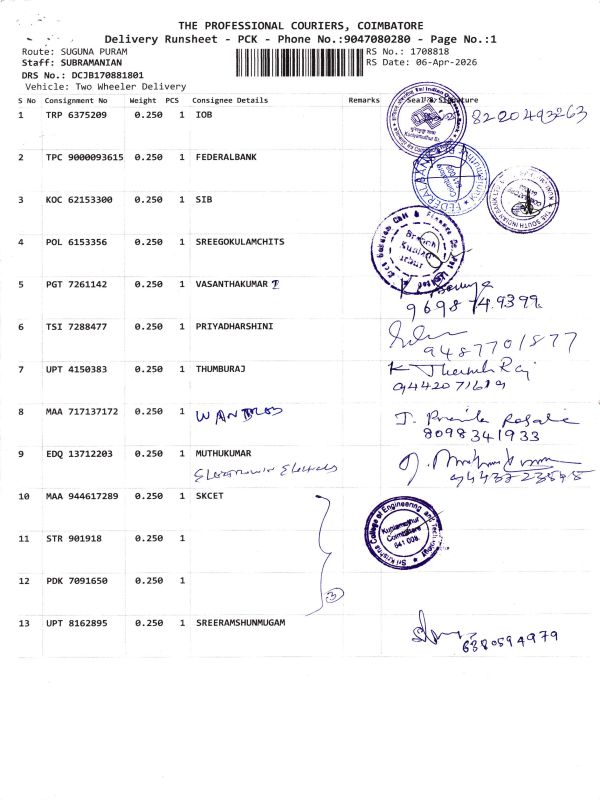 THE PROFESSIONAL COURIERS, COIMBATORE
Delivery Runsheet - PCK - Phone No.:9047080280 - Page No.:1
Route: SUGUNA PURAM RS No.: 1708818
Staff: SUBRAMANIAN RS Date: 06-Apr-2026
DRS No.: DCJB170881801
Vehicle: Two Wheeler Delivery
S No Consignment No Weight PCS Consignee Details Remarks Seal & Signature
1 TRP 6375209 0.250 1 IOB 8220493263
2 TPC 9000093615 0.250 1 FEDERALBANK
3 KOC 62153300 0.250 1 SIB
4 POL 6153356 0.250 1 SREEGOKULAMCHITS
5 PGT 7261142 0.250 1 VASANTHAKUMAR
6 TSI 7288477 0.250 1 PRIYADHARSHINI
9487701877
7 UPT 4150383 0.250 1 THUMBURAJ
8 MAA 717137172 0.250 1
8098341933
9 EDQ 13712203 0.250 1 MUTHUKUMAR
10 MAA 944617289 0.250 1 SKCET
Sri Krishna College of Engineering and Technology
Kuniamuthur
Coimbatore
641 008
11 STR 901918 0.250 1
12 PDK 7091650 0.250 1
3
13 UPT 8162895 0.250 1 SREERAMSHUNMUGAM
6380594979